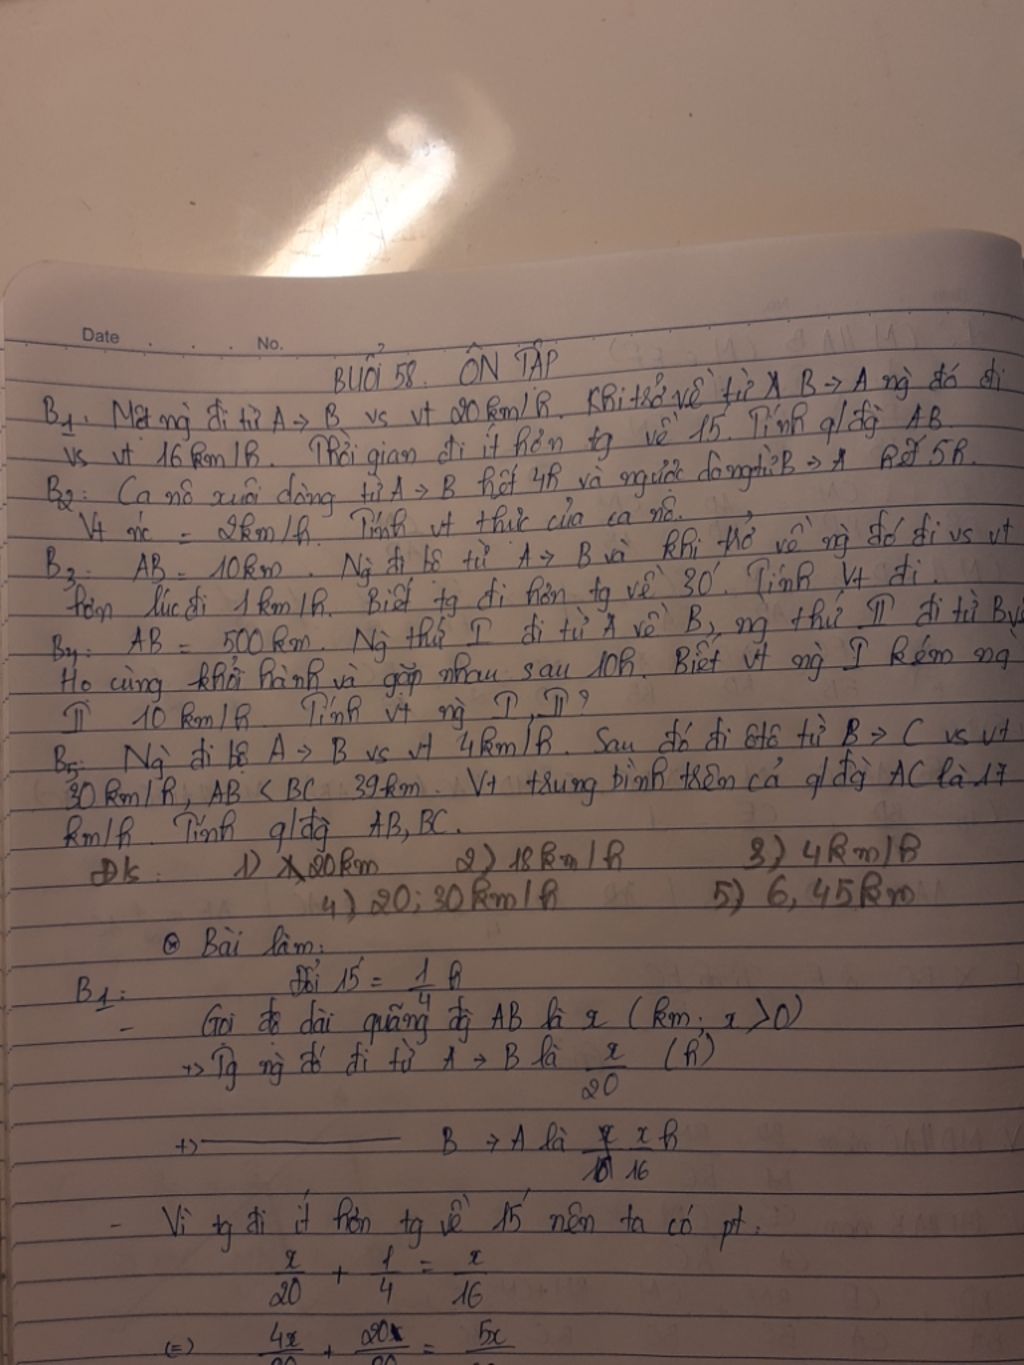 Date . . . No.
BUỔI 58. ÔN TẬP
B1: Một ng` đi từ A → B vs vt 20km/h. Khi trở về từ B → A ng` đó đi
vs vt 16km/h. Thời gian đi ít hơn tg về 15'. Tính q/đg` AB.
B2: Ca nô xuôi dòng từ A → B hết 4h và ngược dòng từ B → A hết 5h.
Vt nc = 2km/h. Tính vt thực của ca nô.
B3: AB = 10km. Ng` đi bộ từ A → B và khi trở về ng` đó đi vs vt
hơn lúc đi 1km/h. Biết tg đi hơn tg về 30'. Tính vt đi.
B4: AB = 500km. Ng` thứ I đi từ A về B, ng thứ II đi từ B về
Họ cùng khởi hành và gặp nhau sau 10h. Biết vt ng` I kém ng`
II 10km/h. Tính vt ng` I, II?
B5: Ng` đi bộ A → B vs vt 4km/h. Sau đó đi ôtô từ B → C vs vt
30km/h, AB < BC 39km. Vt trung bình trên cả q/đg` AC là 17
km/h. Tính q/đg` AB, BC.
Đk: 1) 20km 2) 18km/h 3) 4km/h
4) 20; 30km/h 5) 6, 45km
⊗ Bài làm:
B1: Đổi 15' = 1/4 h
- Gọi độ dài quãng đg` AB là x (km; x > 0)
+> Tg ng` đó đi từ A → B là x/20 (h)
+> ———— B → A là x/16 h
- Vì tg đi ít hơn tg về 15' nên ta có pt:
x/20 + 1/4 = x/16
(=) 4x/80 + 20/80 = 5x